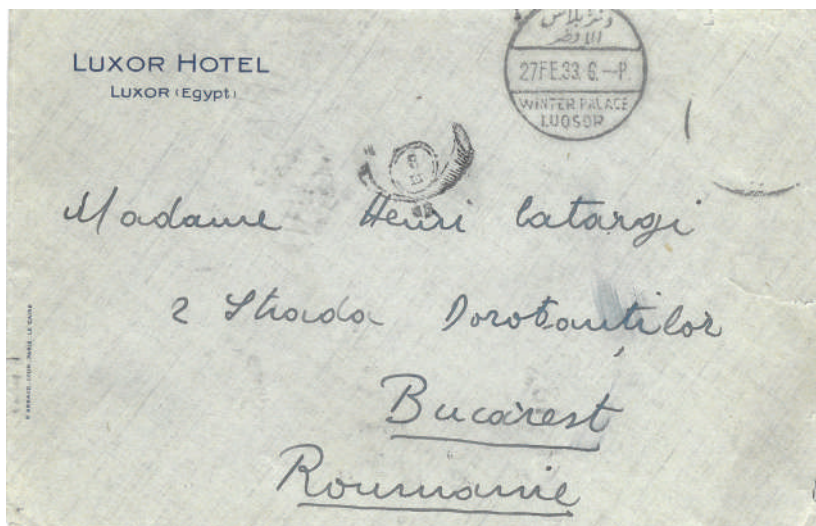 LUXOR HOTEL
LUXOR (Egypt)
ونتر بلاس
الاقصر
27 FE.33. 6.—P.
WINTER PALACE
LUQSOR
Madame Henri Catargi
2 Strada Dorobantilor
Bucarest
Roumanie